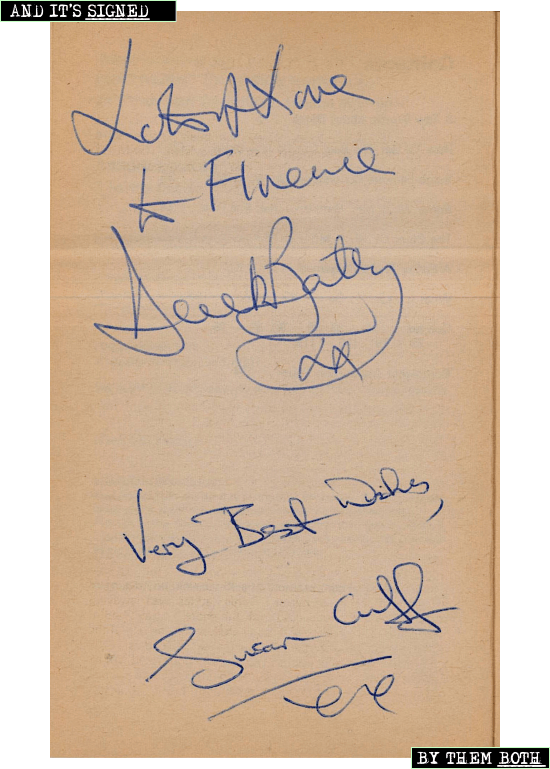 AND IT'S SIGNED
Lots of Love
to Florence
Derek Batey
xx
Very Best Wishes,
Susan Cuff
BY THEM BOTH